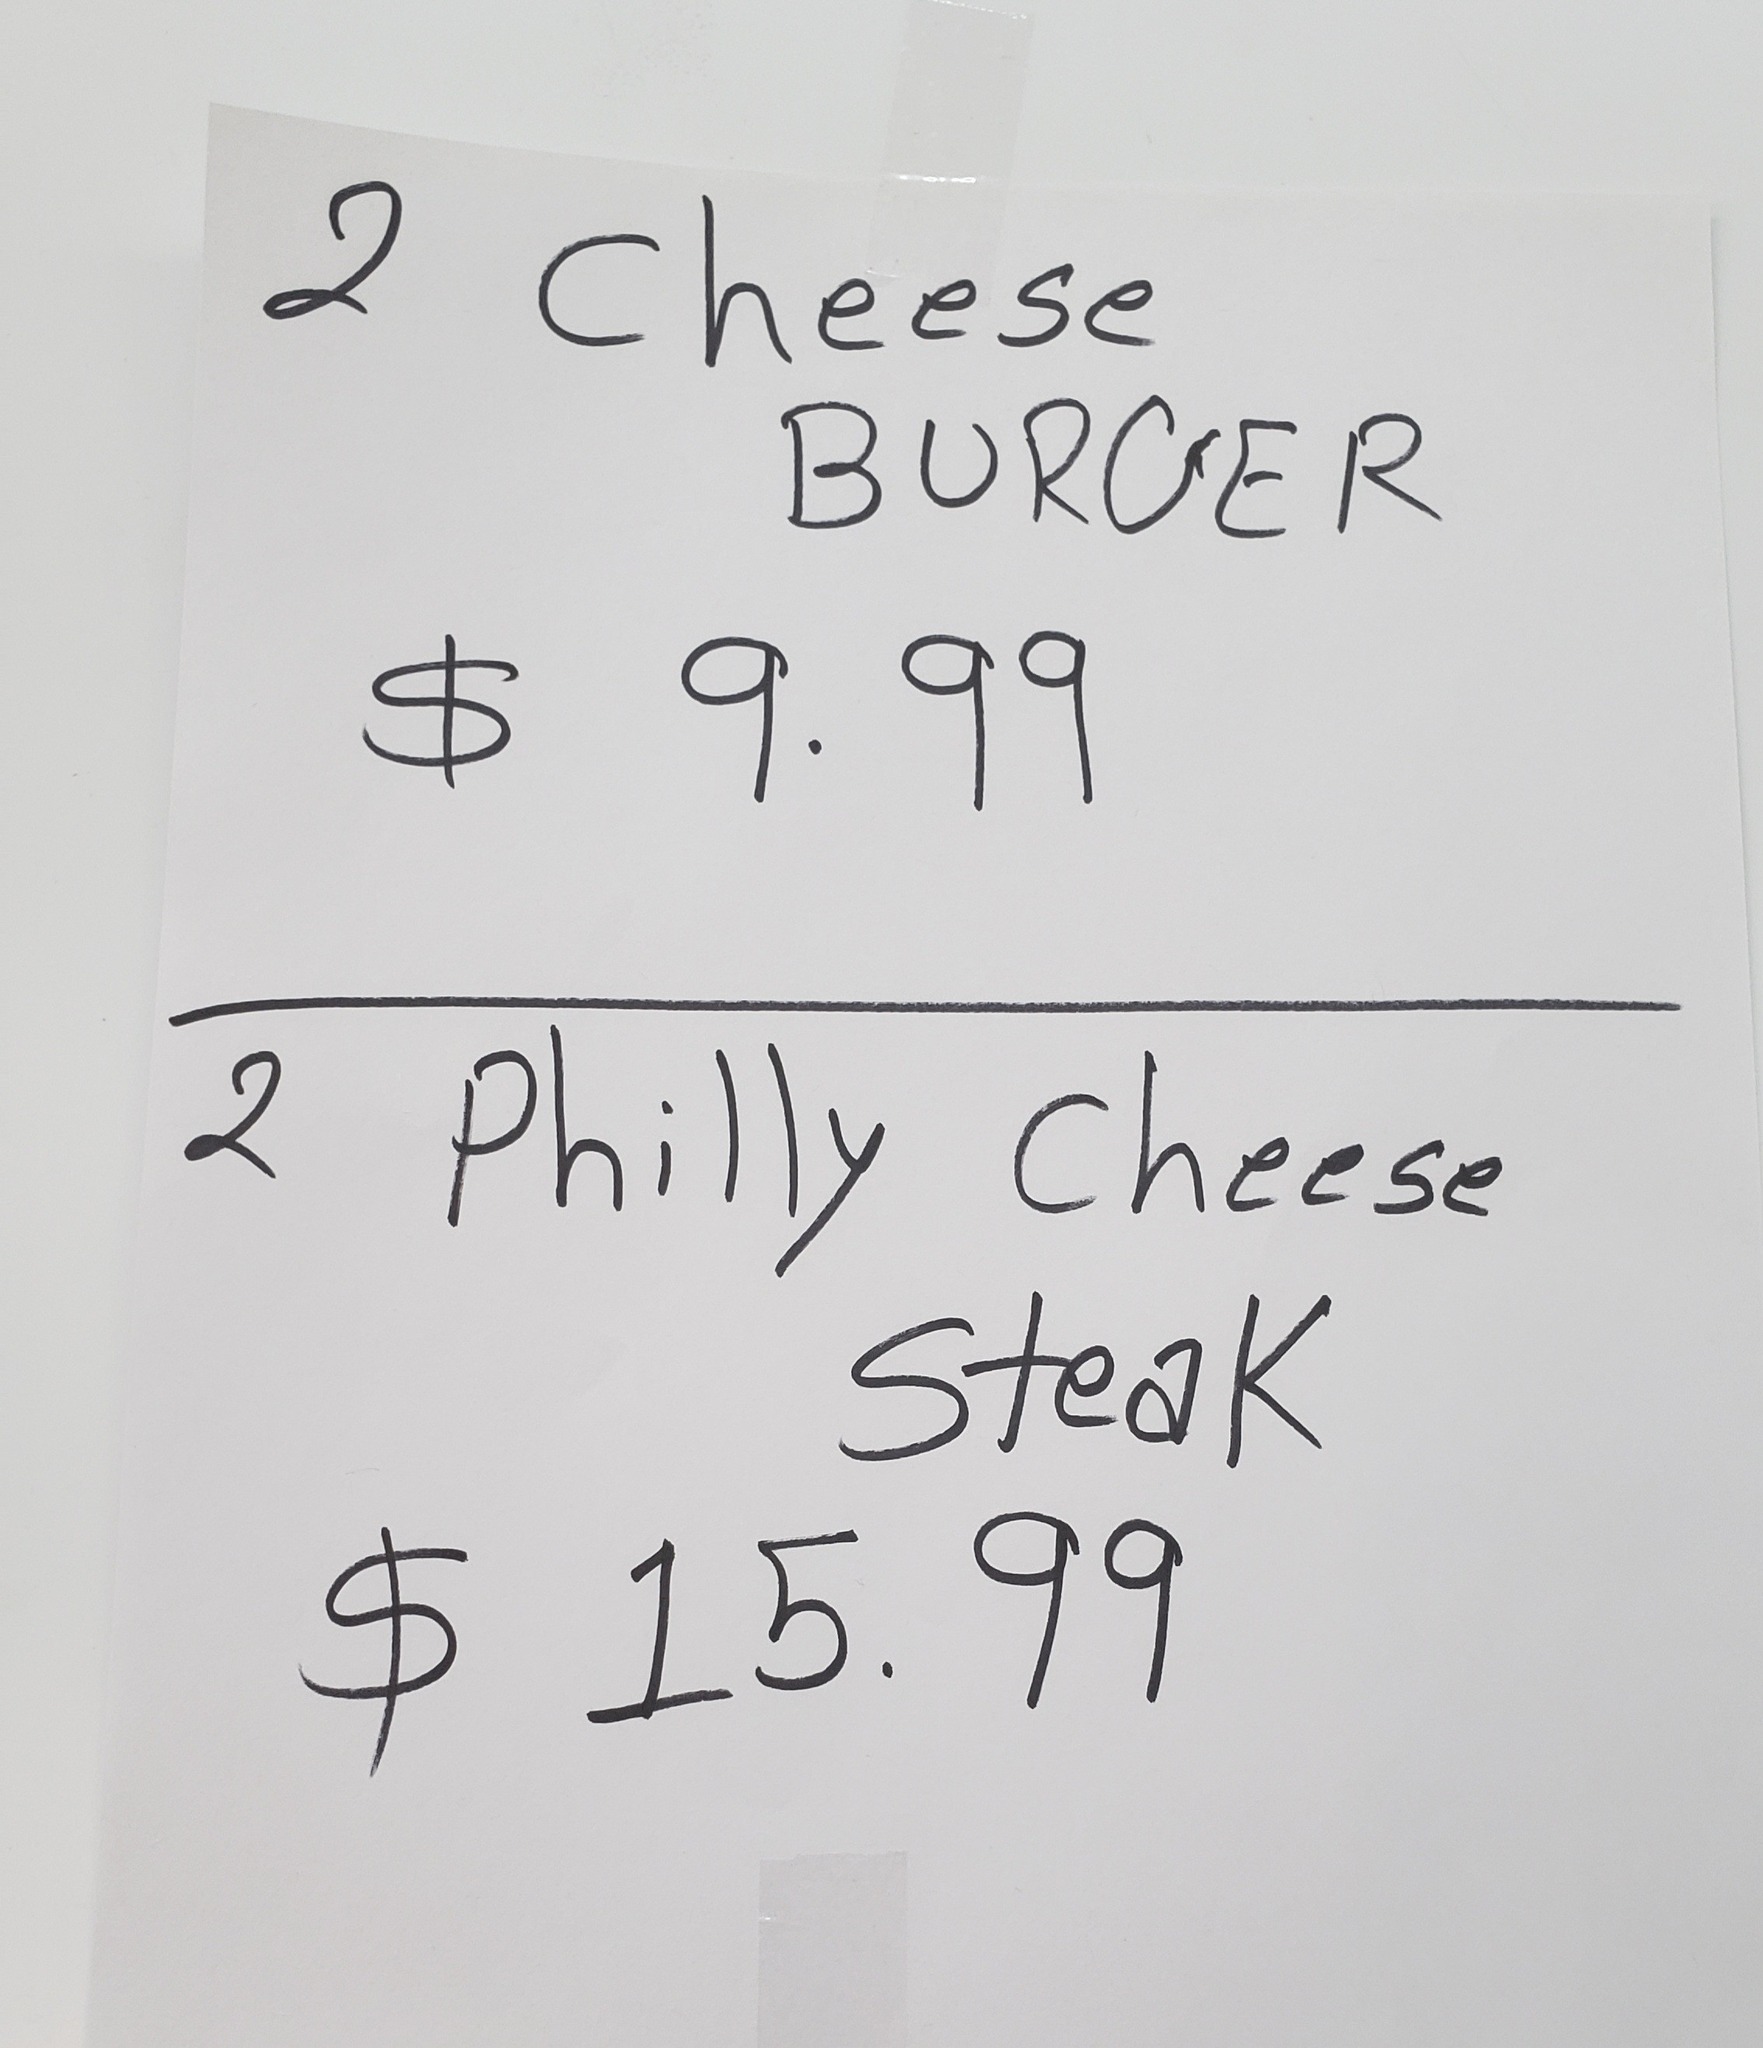 2 Cheese
BURGER
$ 9.99
2 Philly Cheese
Steak
$ 15.99